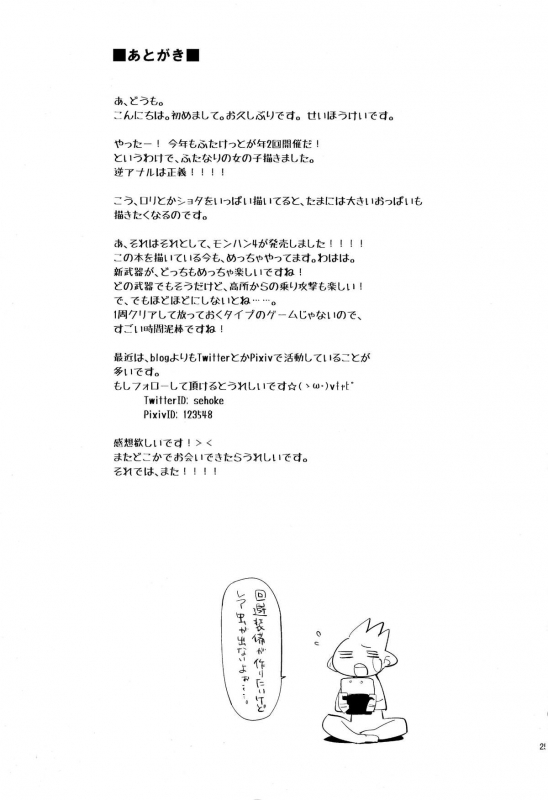 ■あとがき■
あ、どうも。
こんにちは。初めまして。お久しぶりです。せいほうけいです。
やったー！ 今年もふたけっとが年2回開催だ！
というわけで、ふたなりの女の子描きました。
逆アナルは正義！！！！
こう、ロリとかショタをいっぱい描いてると、たまには大きいおっぱいも
描きたくなるのです。
あ、それはそれとして、モンハン4が発売しました！！！！
この本を描いている今も、めっちゃやってます。わはは。
新武器が、どっちもめっちゃ楽しいですね！
どの武器でもそうだけど、高所からの乗り攻撃も楽しい！
で、でもほどほどにしないとね……。
1周クリアして放っておくタイプのゲームじゃないので、
すごい時間泥棒ですね！
最近は、blogよりもTwitterとかPixivで活動していることが
多いです。
もしフォローして頂けるとうれしいです☆(ゝω･)vｷｬﾋﾟ
TwitterID: sehoke
PixivID: 123548
感想欲しいです！><
またどこかでお会いできたらうれしいです。
それでは、また！！！！
回避装備が作りたいけど
レア虫が出ないよぉ‥‥
25